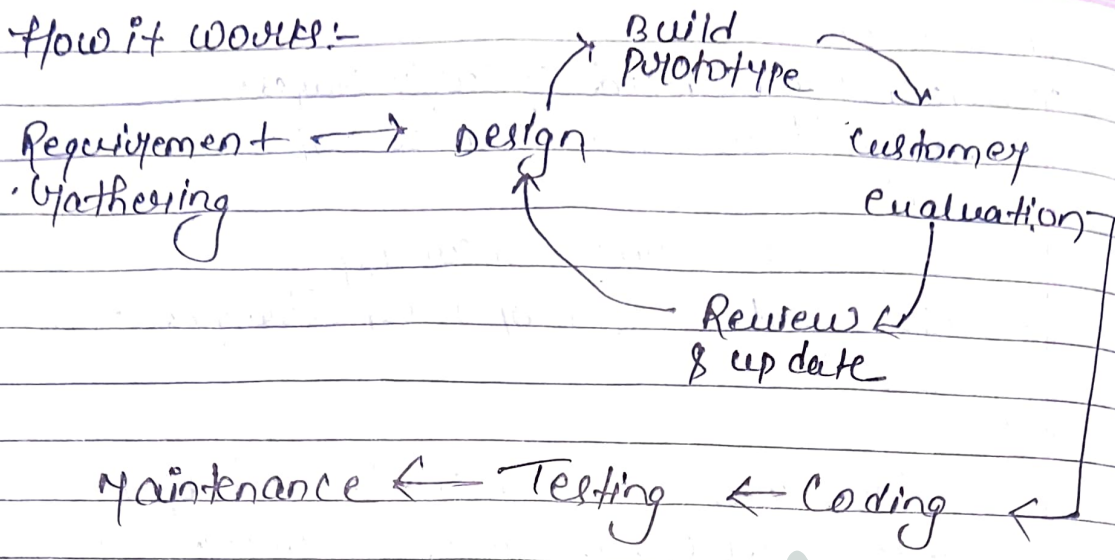 How it works:-
Build
Prototype
Requirement → Design
Gathering
Customer
evaluation
Review
& update
Maintenance ← Testing ← Coding ←